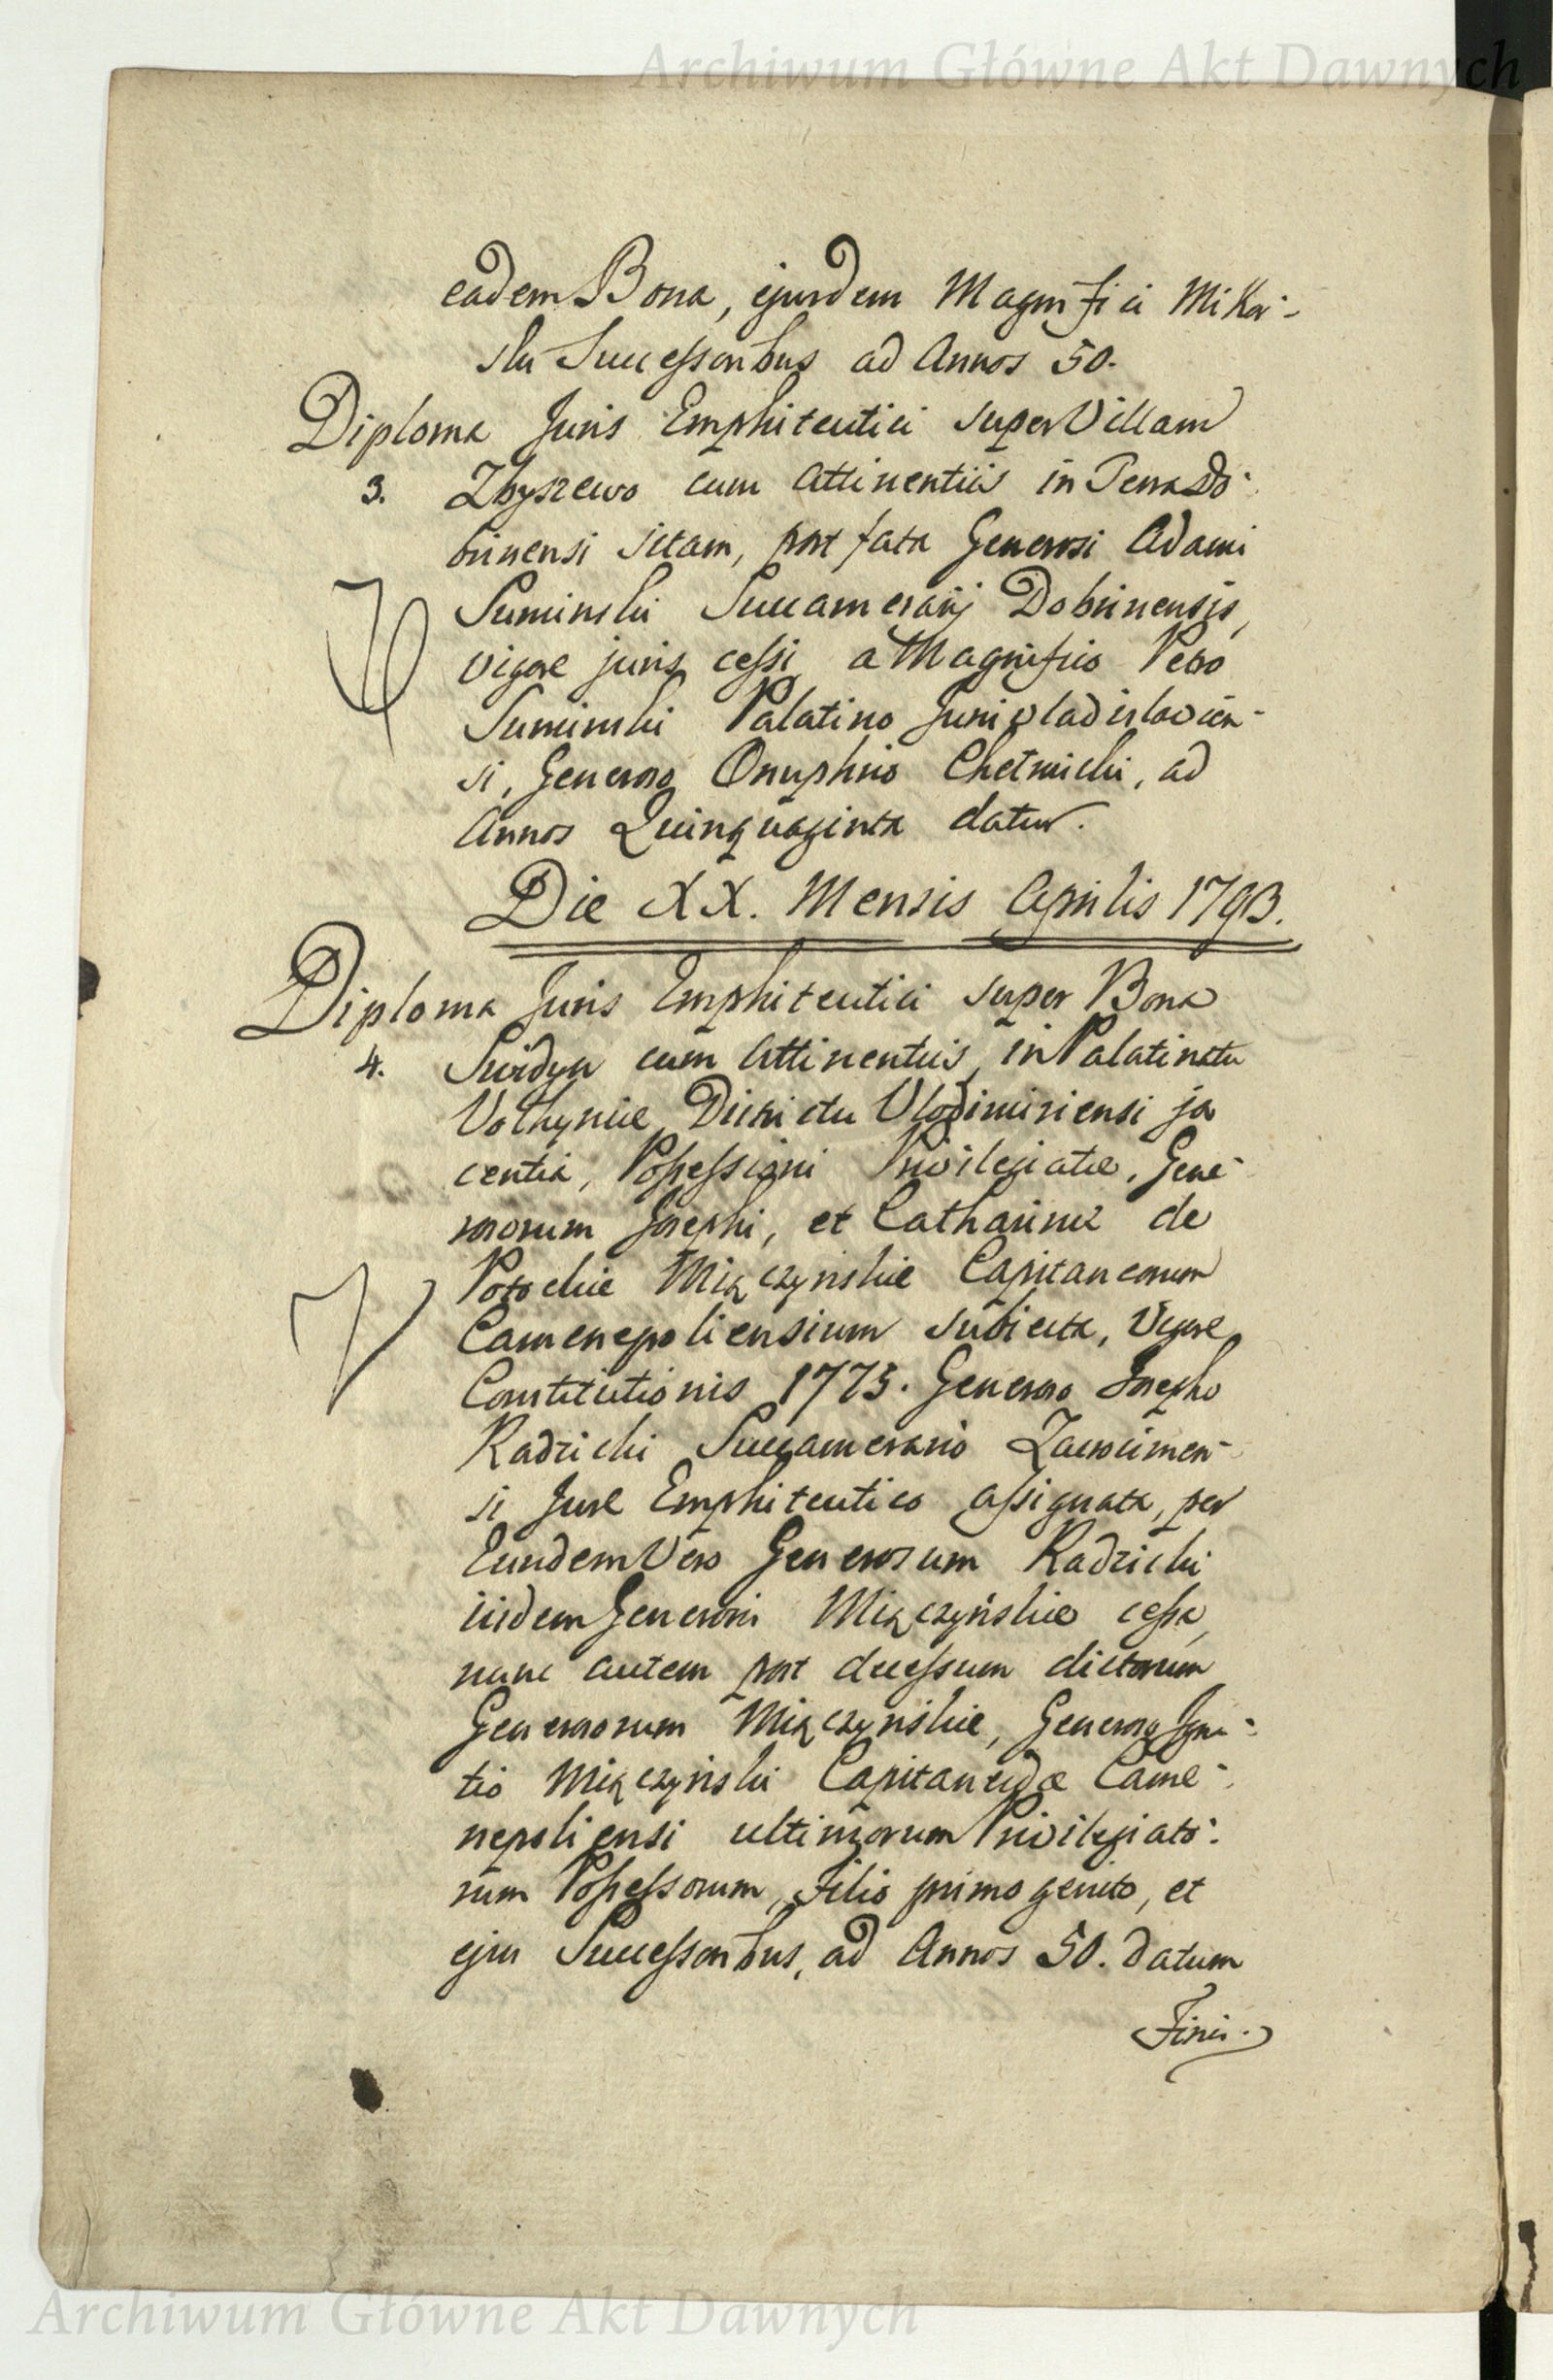 Archiwum Główne Akt Dawnych
eadem Bona, ejusdem Magnifici Mikor-
ski Successoribus ad Annos 50.
Diploma Juris Emphiteutici super Villam
3. Zbyszewo cum Attinentiis in Terra Do-
brinensi sitam, post fata Generosi Adami
Suminski Succamerarij Dobrinensis,
vigore juris cessi a Magnifico Petro
Suminski Palatino Junivladislavien-
si, Generoso Onuphrio Chełmicki, ad
Annos Quinquaginta datur.
Die XX. Mensis Aprilis 1793.
Diploma Juris Emphiteutici super Bona
4. cum Attinentiis, in Palatinatu
Volhyniæ Districtu Vlodimiriensi ja
centia, Possessioni Privilegiatæ, Gene-
rosorum Josephi, et Catharinæ de
Potockie Miączyńskie Capitaneorum
Camenepoliensium subiecta, Vigore
Constitutionis 1775. Generoso Josepho
Radzicki Succamerario Zakrocimen-
si Jure Emphiteutico assignata, per
Eundem Vero Generosum Radzicki
iisdem Generosis Miączyńskie cessa,
nunc autem post decessum dictorum
Generosorum Miączyńskie, Generoso Igna-
tio Miączyński Capitaneidæ Came-
nepoliensi ultimorum Privilegiato-
rum Possessorum, Filio primogenito, et
ejus Successoribus, ad Annos 50. datum
Finis.
Archiwum Główne Akt Dawnych